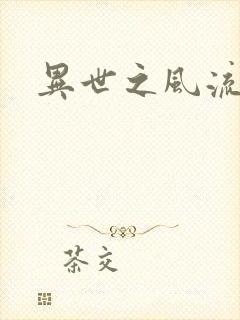 異世之風流
茶交